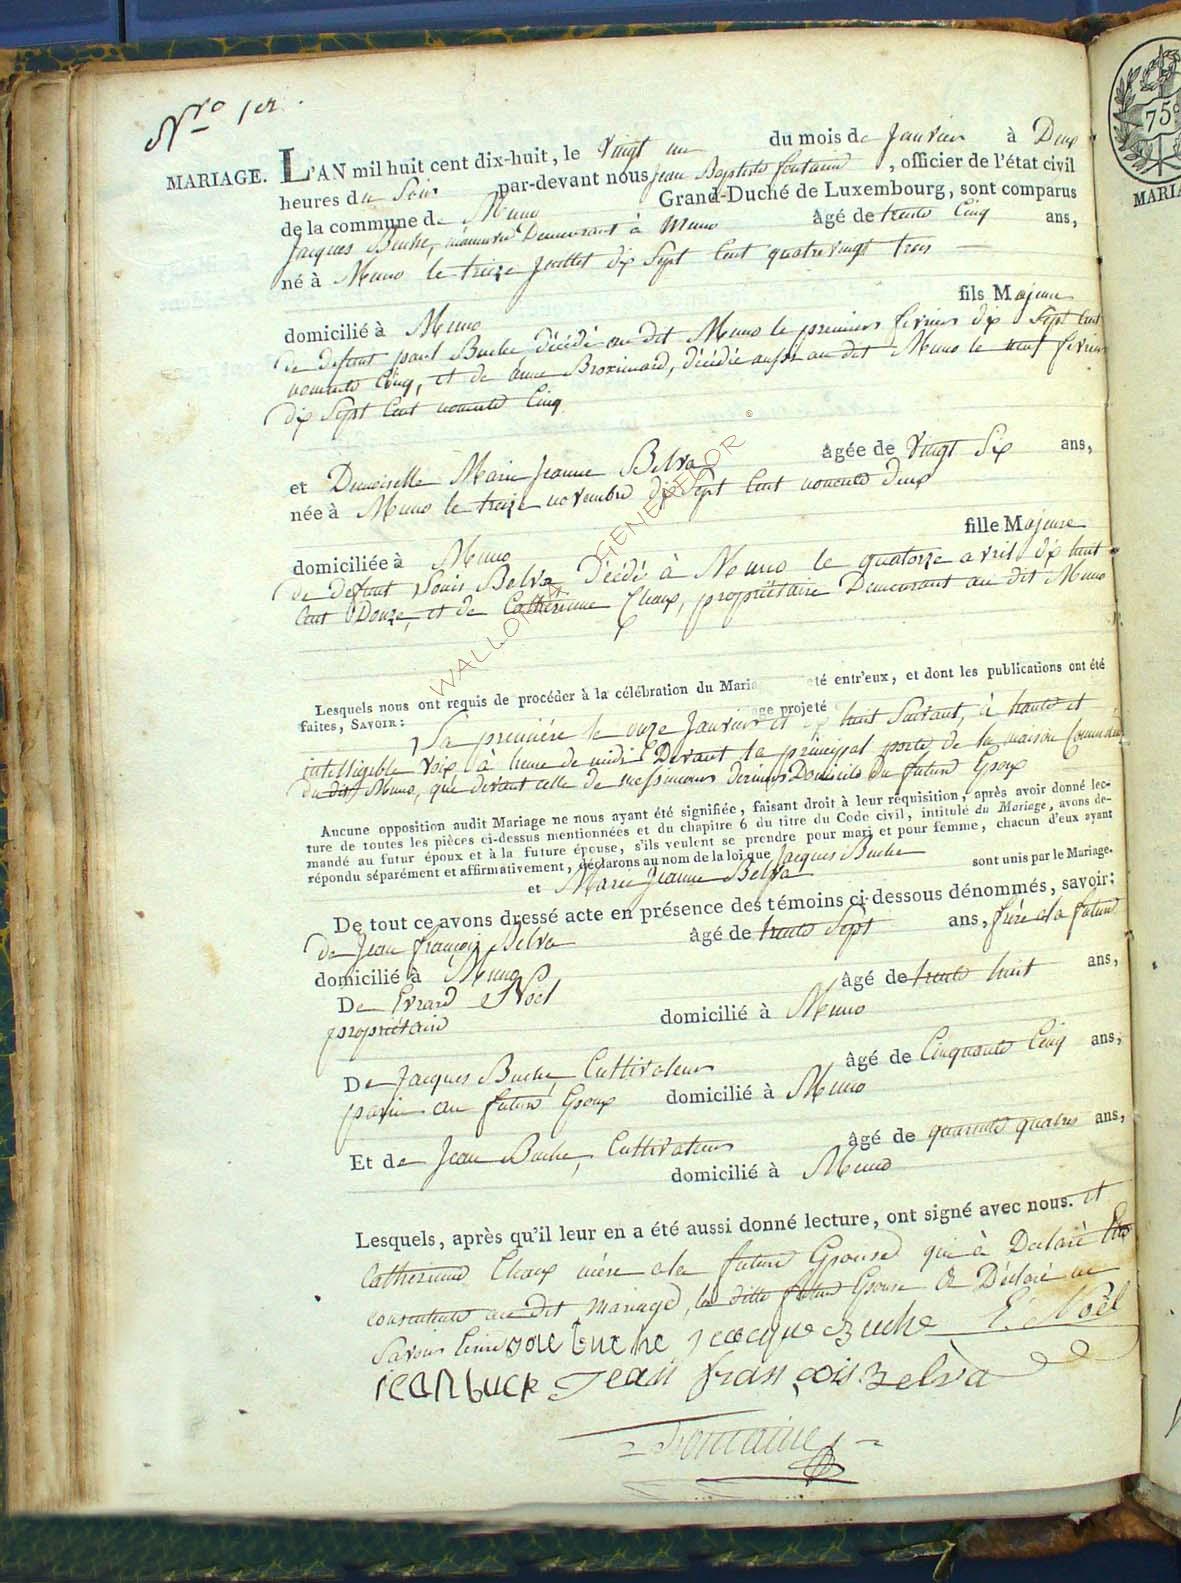 Nro 1er.
MARIAGE. L'AN mil huit cent dix-huit, le vingt un du mois de Janvier à Deux
heures du Soir par-devant nous Jean Baptiste fontaine, officier de l'état civil
de la commune de Muno Grand-Duché de Luxembourg, sont comparus
Jacques Buche, Demeurant à Muno âgé de trente Cinq ans,
né à Muno le treize Juillet dix Sept Cent quatrevingt trois
domicilié à Muno fils Majeur
de defunt paul Buche décédé au dit Muno le premier fevrier dix Sept Cent
nonente Cinq, et de anne Broximard, décédée aussi au dit Muno le neuf fevrier
dix Sept Cent nonente Cinq
et Demoiselle Marie Jeanne Belva âgée de vingt Six ans,
née à Muno le treize novembre dix Sept Cent nonente Deux
domiciliée à Muno fille Majeure
de defunt Louis Belva Décédé à Muno le quatorze avril dix huit
Cent Douze, et de Catherinne Chaux, propriétaire Demeurant au dit Muno
WALLONIA GENEGELOR ©
Lesquels nous ont requis de procéder à la célébration du Maria été entr'eux, et dont les publications ont été
faites, SAVOIR: age projeté
La première le onze Janvier et huit Suivant, à haute et
intelligible voix à heure de midi Devant la principal porte de la maison Commune
du dit Muno, que devant celle de Domicile du futur Epoux
Aucune opposition audit Mariage ne nous ayant été signifiée, faisant droit à leur réquisition, après avoir donné lec-
ture de toutes les pièces ci-dessus mentionnées et du chapitre 6 du titre du Code civil, intitulé du Mariage, avons de-
mandé au futur époux et à la future épouse, s'ils veulent se prendre pour mari et pour femme, chacun d'eux ayant
répondu séparément et affirmativement, déclarons au nom de la loi que Jacques Buche
et Marie Jeanne Belva sont unis par le Mariage.
De tout ce avons dressé acte en présence des témoins ci-dessous dénommés, savoir:
de Jean françois Belva âgé de trente Sept ans, frère ala future
domicilié à Muno
De Evrard Noël âgé de trente huit ans,
propriétaire domicilié à Muno
De Jacques Buche, Cultivateur âgé de Cinquante Cinq ans,
parin au futur Epoux domicilié à Muno
Et de Jean Buche, Cultivateur âgé de quarante quatre ans,
domicilié à Muno
Lesquels, après qu'il leur en a été aussi donné lecture, ont signé avec nous. et
Catherinne Chaux mère ala future Epouse qui à Declaré
consentire au dit mariage, la ditte future Epouse à Déclaré ne
Savoir Ecrire buche jacque Buche E. Noël
jean buck Jean françois Belva
Fontaine
75c
MARIA